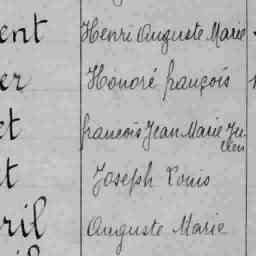 ent Henri Auguste Marie
er Honoré françois
et francois Jean Marie Ju-
lien
t Joseph Louis
ril Auguste Marie